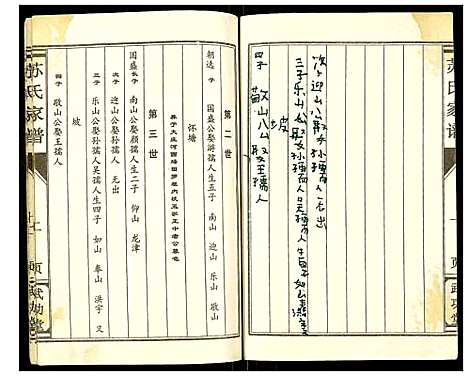 苏氏家谱
第二世
朝选 子 国盛公娶游孺人生五子 南山 迎山 乐山 敬山
怀塘
葬于大庄河西
第三世
国盛长子 南山公娶颜孺人生二子 仰山 龙津
次子 迎山公娶孙孺人 无出
三子 乐山公娶孙孺人吴孺人生四子 如山 泰山 洪宇 又
坡
四子 敬山公娶王孺人
十一 页
武功堂
苏氏家谱
次子迎山公娶孙孺人无出
三子乐山公娶孙孺人吴孺人生四子如山泰
又坡
四子 敬山公娶王孺人
页
武功堂